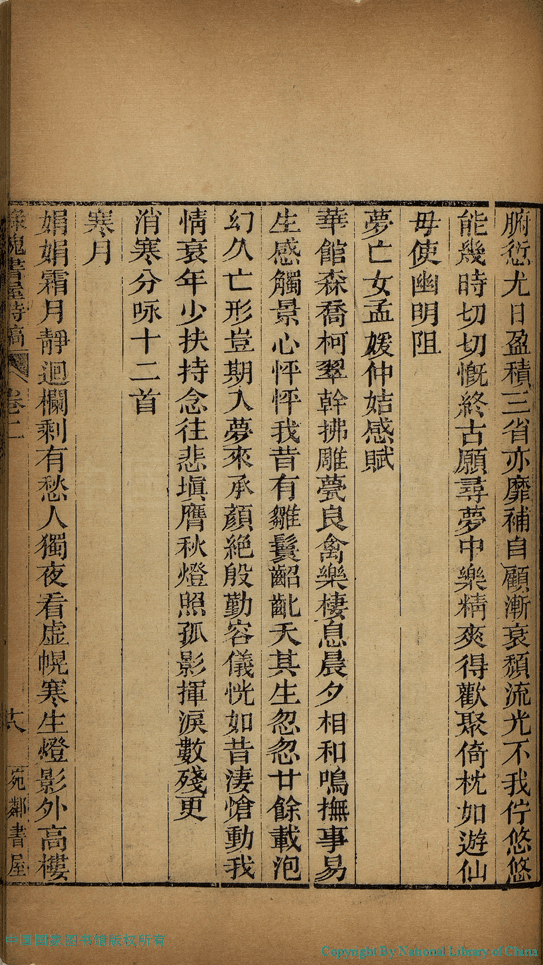 腑愆尤日盈積三省亦靡補自顧漸衰頹流光不我佇悠悠
能幾時切切慨終古願尋夢中樂精爽得歡聚倚枕如遊仙
毋使幽明阻
夢亡女孟媛仲姞感賦
華館森喬柯翠幹拂雕甍良禽樂棲息晨夕相和鳴撫事易
生感觸景心怦怦我昔有雛鬟齠齔夭其生忽忽廿餘載泡
幻久亡形豈期入夢來承顏絕殷勤容儀恍如昔淒愴動我
情衰年少扶持念往悲塡膺秋燈照孤影揮淚數殘更
消寒分咏十二首
寒月
娟娟霜月靜迴欄剩有愁人獨夜看虛幌寒生燈影外高樓
綠槐書屋詩稿 卷二 十八 宛鄰書屋
中國國家圖書館版权所有
Copyright By National Library of China